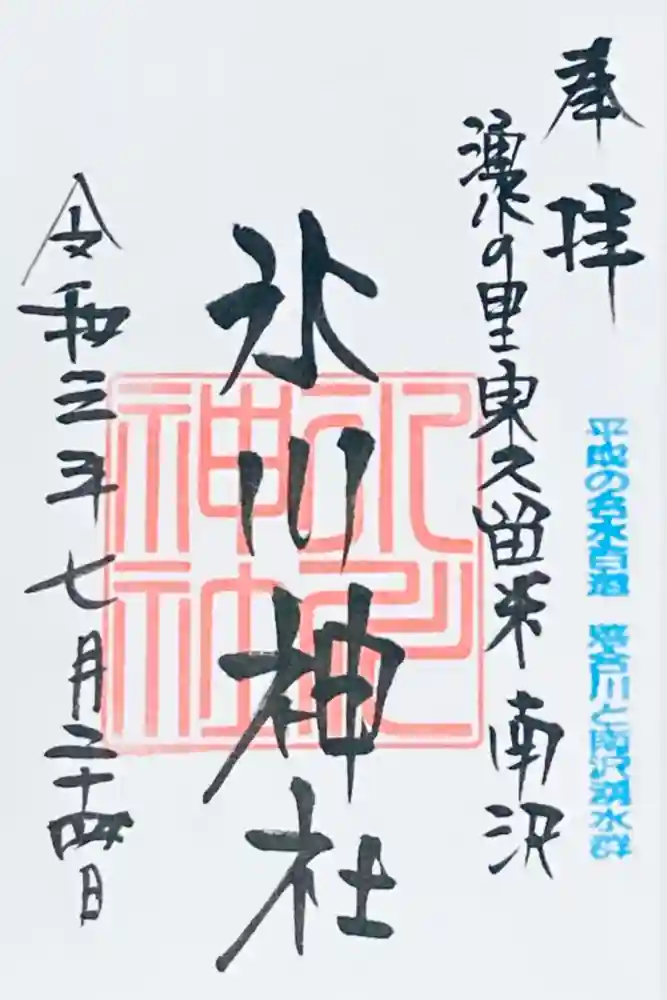 奉拝
平成の名水百選 落合川と南沢湧水群
湧水の里東久留米 南沢
氷川神社
氷川
神社
令和三年七月二十四日